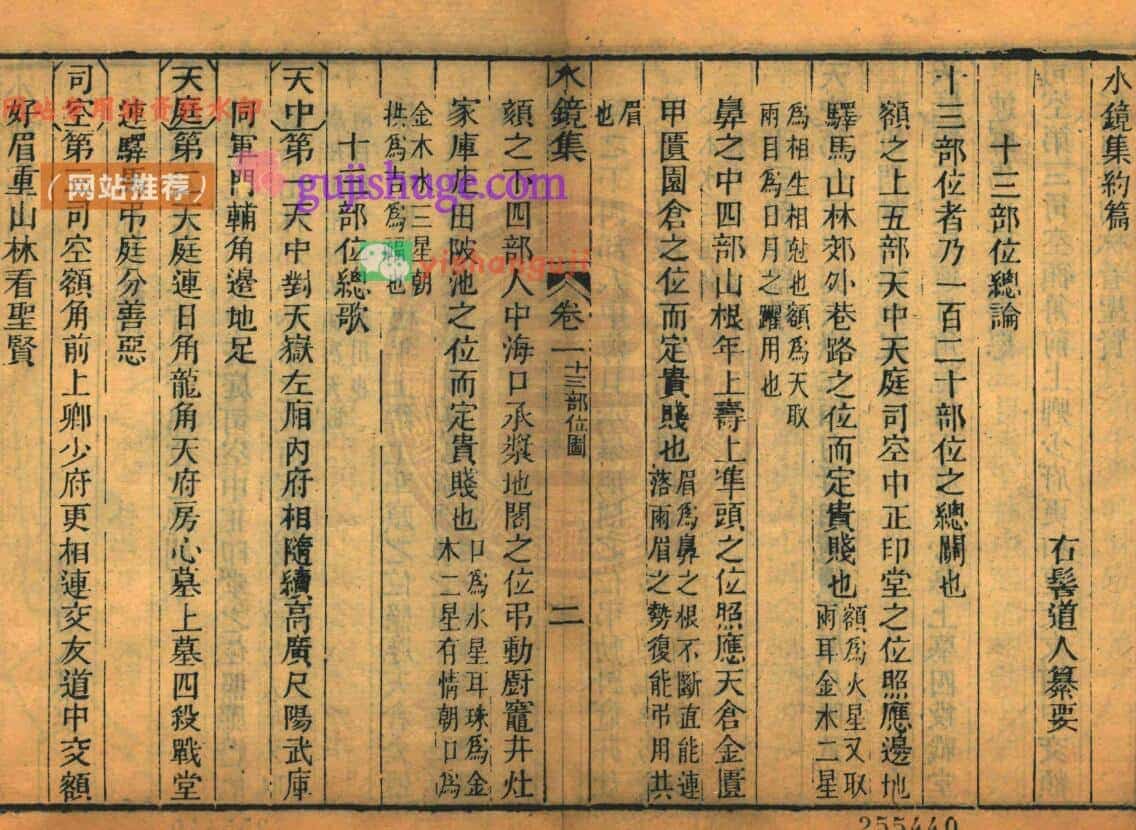 水鏡集約篇
右髻道人纂要
十三部位總論
十三部位者乃一百二十部位之總關也
額之上五部天中天庭司空中正印堂之位照應邊地
驛馬山林郊外巷路之位而定貴賤也額為火星又取
雨耳金木二星
為相生相尅也額為天取
雨目為日月之躍用也
鼻之中四部山根年上壽上準頭之位照應天倉金匱
甲匱園倉之位而定貴賤也眉為鼻之根不斷直能連
落雨眉之勢復能弔用共
眉
也
水鏡集 卷一 十三部位圖 二
頦之下四部人中海口承漿地閣之位弔動廚竈井灶
家庫庄田陂池之位而定貴賤也口為水星耳珠為金
木二星有情朝口為
金木水三星朝
拱為吉為福也
十三部位總歌
天中第一天中對天獄左廂內府相隨續高廣尺陽武庫
同軍門輔角邊地足
天庭第二天庭連日角龍角天府房心墓上墓四殺戰堂
連驛馬弔庭分善惡
司空第三司空額角前上卿少府更相連交友道中交額
好眉重山林看聖賢
网站推荐
gujishuge.com
yishanguji
255440